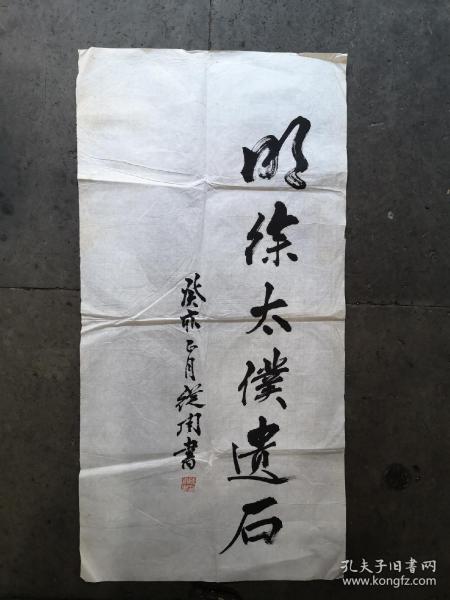 明徐太僕遺石
癸亥正月從周書
孔夫子旧书网
www.kongfz.com